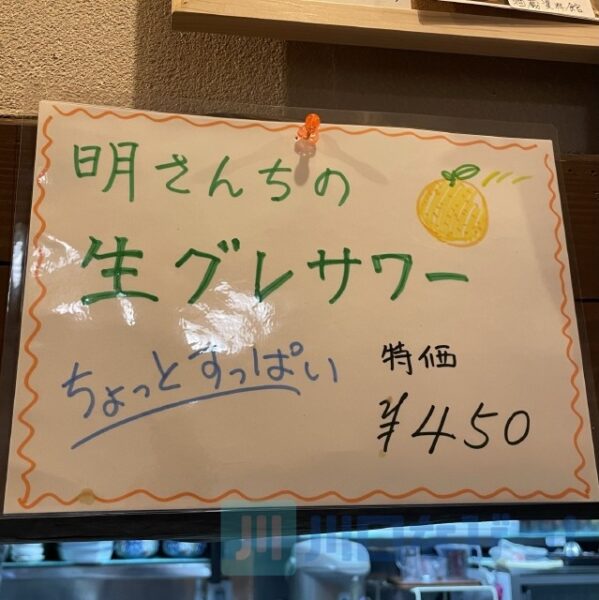 明さんちの
生グレサワー
ちょっとすっぱい
特価
¥450